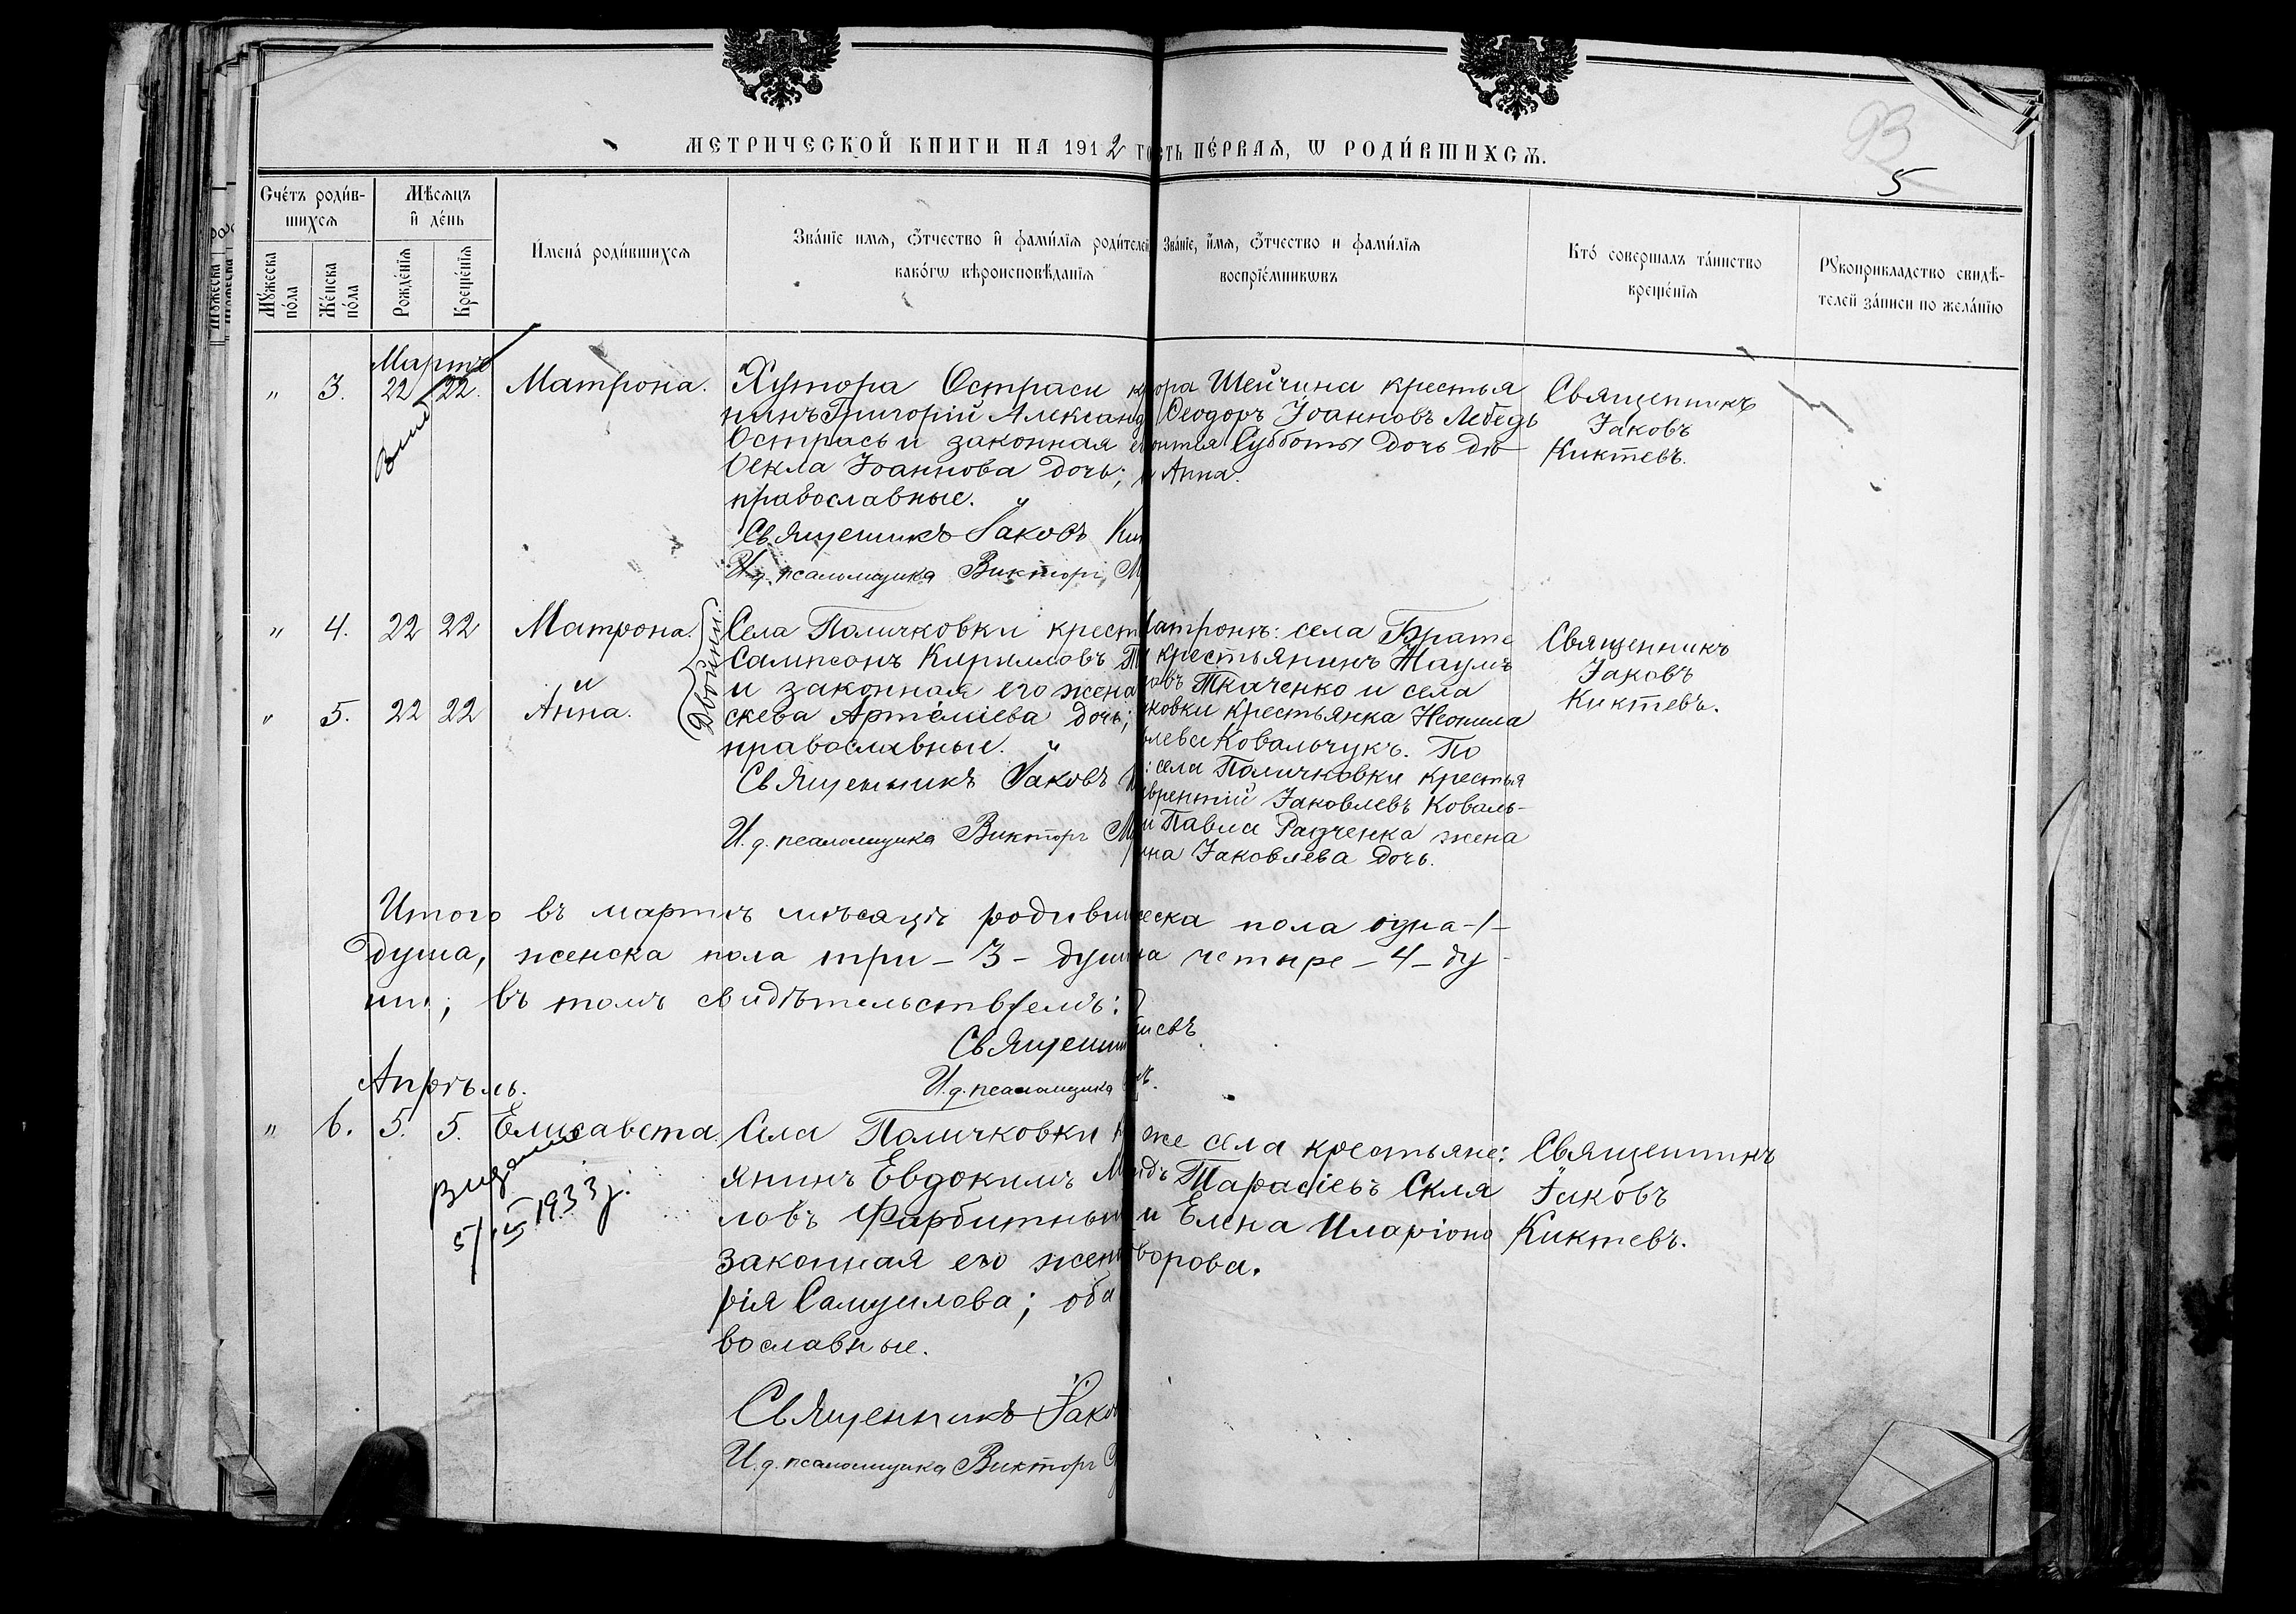 МЕТРИЧЕСКОЙ КНИГИ НА 1912 ГО
СТЬ ПЕ́РВАѦ, Ѡ РОДИ́ВШИХСѦ.
93
5
Сче́тъ роди́в-
шихсѧ
Мꙋ́жеска
по́ла
Же́нска
по́ла
Мѣ́сѧцъ
и де́нь
Рожде́нїѧ
Креще́нїѧ
Имена́ роди́вшихсѧ
Зва́нїе имѧ, ѻ҆́тчество и фами́лїѧ роди́телей
како́гѡ вѣроисповѣ́данїѧ
Зва́нїе, и́мѧ, ѻ҆́тчество и фами́лїѧ
воспрїе́мникѡвъ
Кто́ соверша́лъ та́инство
креще́нїѧ
Рꙋкоприкладство свидѣ́-
телей за́писи по жела́нїю
Мартъ
" 3. 22 22. Матрона.
Хутора Остраси к
нинъ Григорій Александ
Острась и законная е
Ѳекла Іоаннова дочь;
православные.
Священникъ Іаковъ Ки
И. д. псаломщика Викторъ М
ора Шейчина крестья
Ѳеодоръ Іоанновъ Лебедь
онтія Субботы дочь дѣ-
Анна.
Священникъ
Іаковъ
Киктевъ.
" 4. 22 22 Матрона.
и
" 5. 22 22 Анна.
Двойни.
Села Паличковки крест
Сампсонъ Кирилловъ Т
и законная его жена
скева Артеміева дочь;
православные.
Священникъ Іаковъ К
И. д. псаломщика Викторъ М
атроны: села Брате
крестьянинъ Наумъ
овъ Ткаченко и села
ковки крестьянка Неонила
влева Ковальчукъ. По
: села Паличковки крестья
врентій Іаковлевъ Коваль-
и Павла Радченка жена
на Іаковлева дочь.
Священникъ
Іаковъ
Киктевъ.
Итого въ мартѣ мѣсяцѣ родивш
еска пола одна -1-
душа, женска пола три - 3 - душ
а четыре - 4 - ду
ши; въ томъ свидѣтельствуемъ:
Священни
тевъ
И. д. псаломщика
Апрѣль.
" 6. 5. 5. Елисавета.
Выдано
5/III 1933 г.
Села Паличковки к
янинъ Евдокимъ М
ловъ Фарбитный
законная его жен
рія Самуилова; оба
вославные.
Священникъ Іаков
И. д. псаломщика Викторъ
же села крестьяне:
идъ Тарасіевъ Скля
и Елена Иларіоно
ворова.
Священникъ
Іаковъ
Киктевъ.